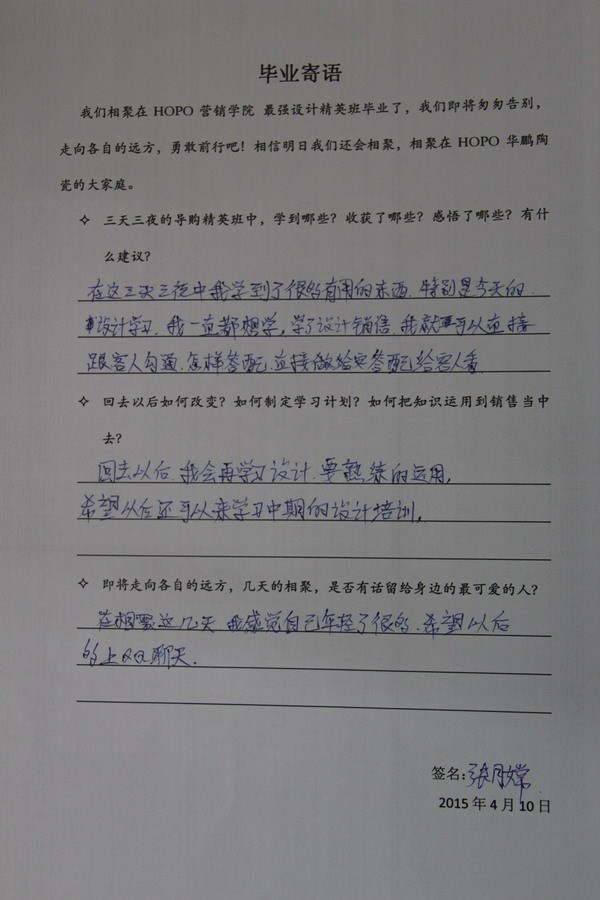 毕业寄语
我们相聚在 HOPO 营销学院 最强设计精英班毕业了，我们即将匆匆告别，
走向各自的远方，勇敢前行吧！相信明日我们还会相聚，相聚在 HOPO 华鹏陶
瓷的大家庭。
✧ 三天三夜的导购精英班中，学到哪些？收获了哪些？感悟了哪些？有什
么建议？
在这三天三夜中我学到了很多有用的东西.特别是今天的
设计学习.我一直都想学,学了设计销售.我就可以直接
跟客人勾通.怎样答配.直接做给客答配给客人看.
✧ 回去以后如何改变？如何制定学习计划？如何把知识运用到销售当中
去？
回去以后.我会再学习设计.要熟练的运用,
希望以后还可以来学习中期的设计培训.
✧ 即将走向各自的远方，几天的相聚，是否有话留给身边的最可爱的人？
在相聚这几天 我感觉自己年轻了很多.希望以后
多上QQ聊天.
签名:张月嫦
2015 年 4 月 10 日